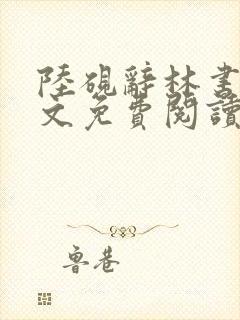 陸硯辭林書
文免費閱讀
魯巷